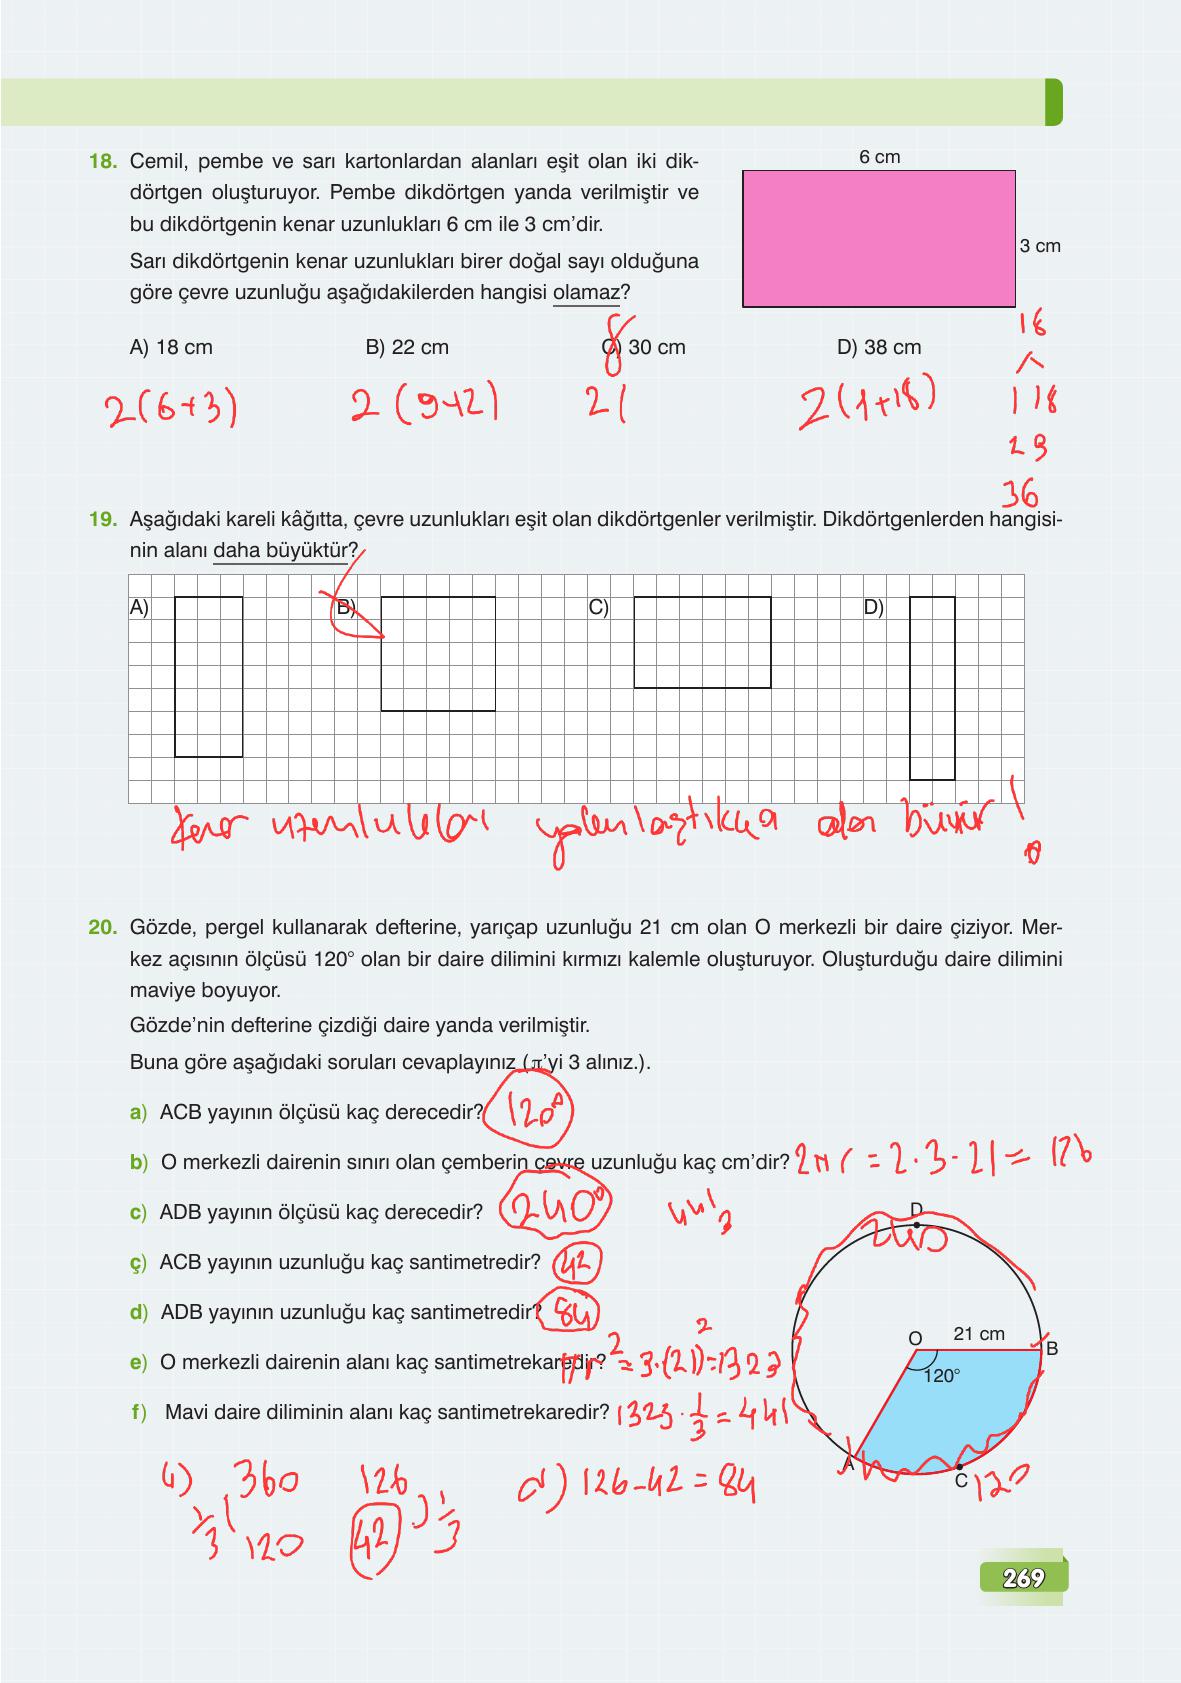 18. Cemil, pembe ve sarı kartonlardan alanları eşit olan iki dik-
dörtgen oluşturuyor. Pembe dikdörtgen yanda verilmiştir ve
bu dikdörtgenin kenar uzunlukları 6 cm ile 3 cm'dir.
Sarı dikdörtgenin kenar uzunlukları birer doğal sayı olduğuna
göre çevre uzunluğu aşağıdakilerden hangisi olamaz?
6 cm
3 cm
A) 18 cm B) 22 cm C) 30 cm D) 38 cm
2(6+3) 2(9+2) 2( 2(1+18)
18
1 18
2 9
3 6
19. Aşağıdaki kareli kâğıtta, çevre uzunlukları eşit olan dikdörtgenler verilmiştir. Dikdörtgenlerden hangisi-
nin alanı daha büyüktür?
A) B) C) D)
Kenar uzunlukları yakınlaştıkça alan büyür!
20. Gözde, pergel kullanarak defterine, yarıçap uzunluğu 21 cm olan O merkezli bir daire çiziyor. Mer-
kez açısının ölçüsü 120° olan bir daire dilimini kırmızı kalemle oluşturuyor. Oluşturduğu daire dilimini
maviye boyuyor.
Gözde'nin defterine çizdiği daire yanda verilmiştir.
Buna göre aşağıdaki soruları cevaplayınız (π'yi 3 alınız.).
a) ACB yayının ölçüsü kaç derecedir? 120°
b) O merkezli dairenin sınırı olan çemberin çevre uzunluğu kaç cm'dir? 2πr = 2·3·21 = 126
c) ADB yayının ölçüsü kaç derecedir? 240°
441
3
ç) ACB yayının uzunluğu kaç santimetredir? 42
d) ADB yayının uzunluğu kaç santimetredir? 84
e) O merkezli dairenin alanı kaç santimetrekaredir? πr² = 3·(21)² = 1323
f) Mavi daire diliminin alanı kaç santimetrekaredir? 1323·1/3 = 441
D
240
O
21 cm
B
120°
A
C
120
360 126
1/3 1/3
120 42
d) 126-42 = 84
269